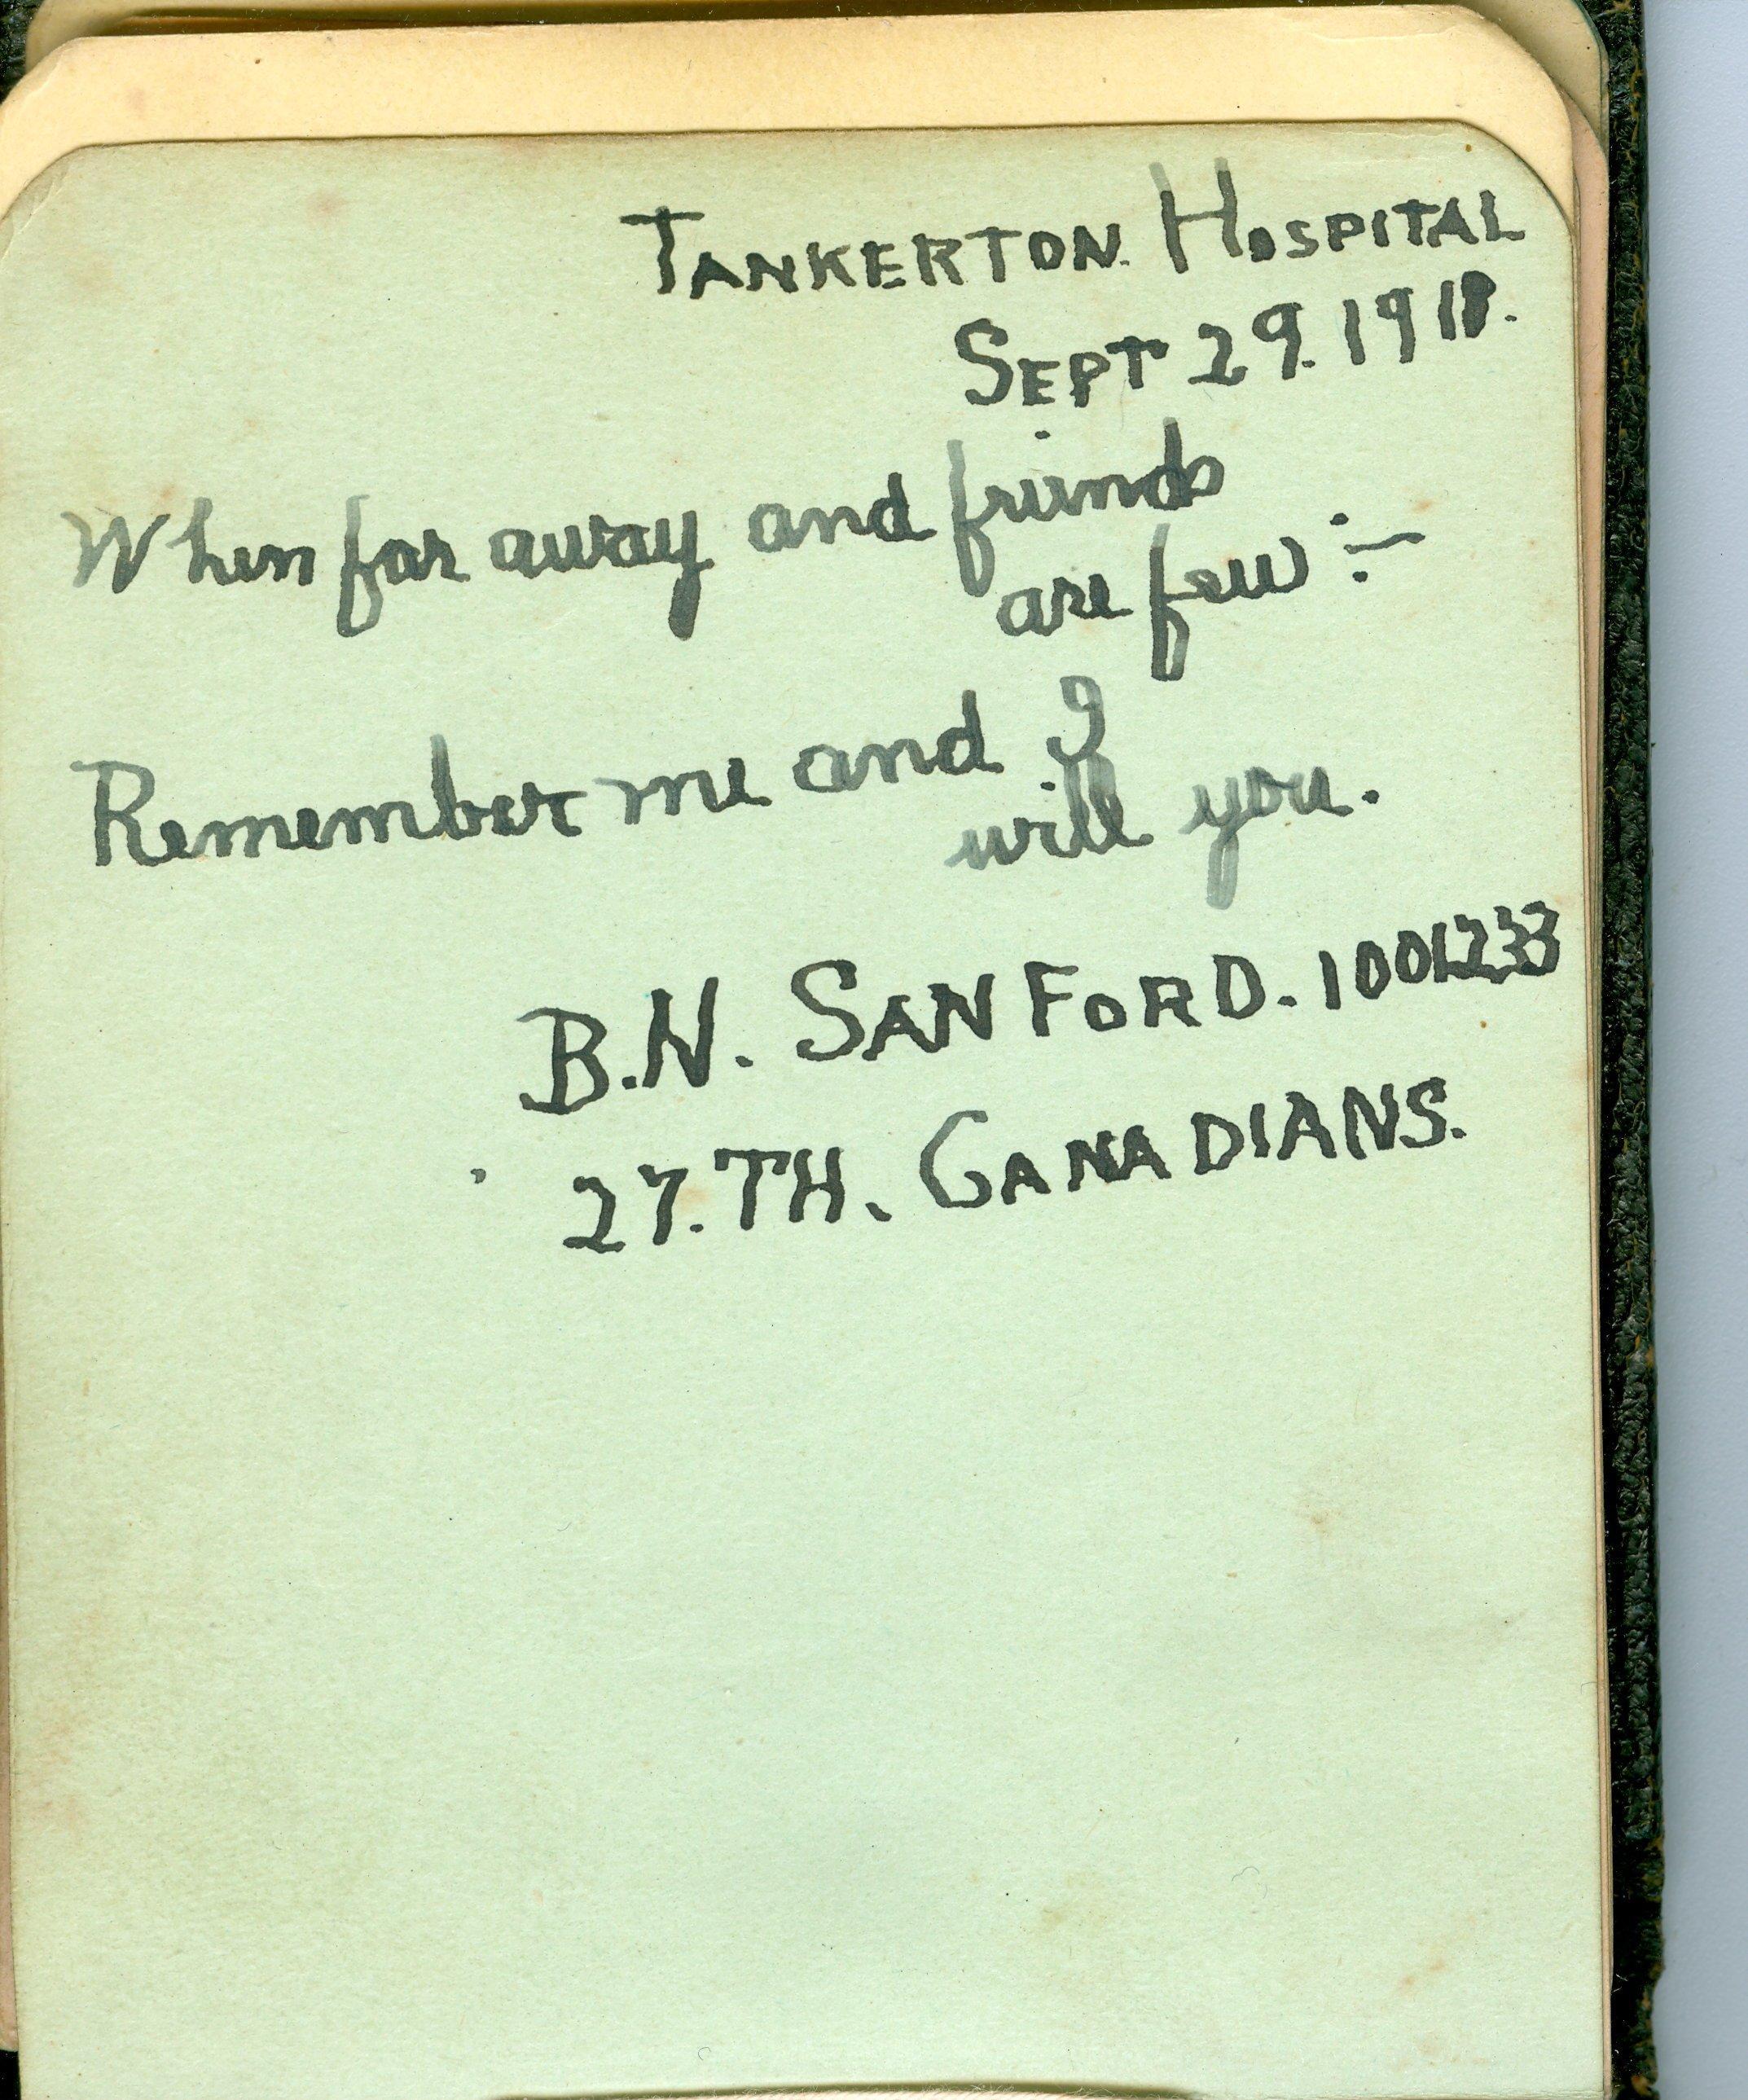 TANKERTON HOSPITAL
SEPT 29. 1918.
When far away and friends
are few :-
Remember me and I
will you.
B.N. SANFORD. 1001233
27.TH. CANADIANS.